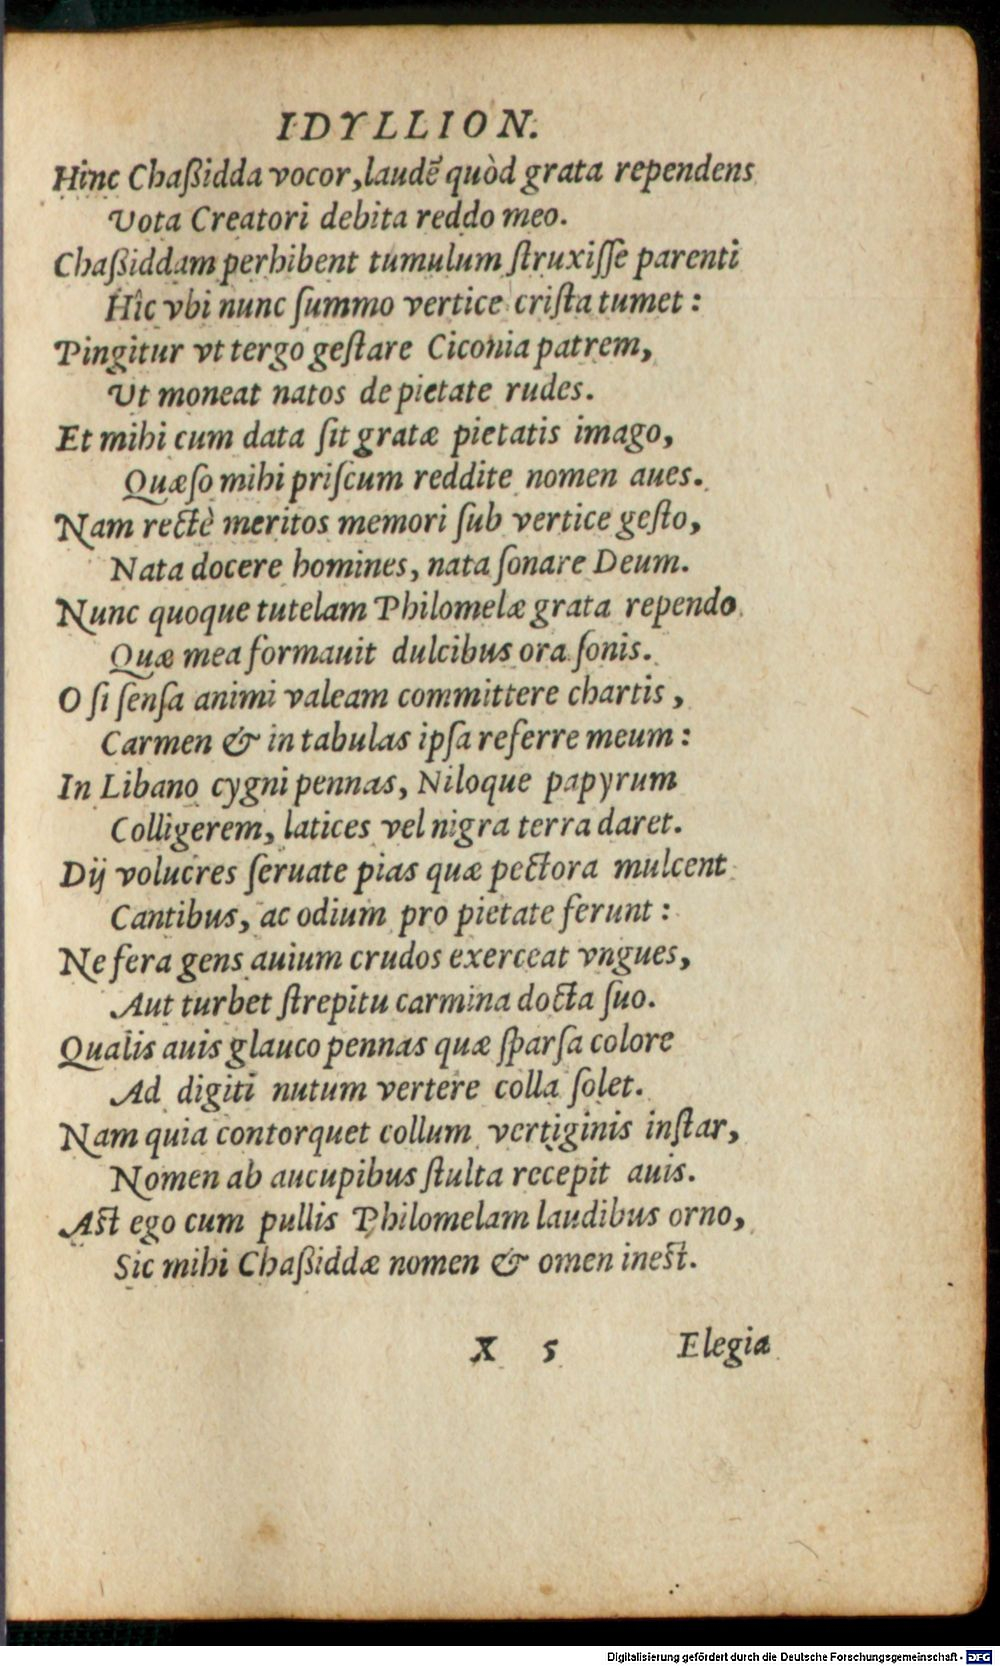 IDYLLION.
Hinc Chaßidda vocor, laudē quòd grata rependens
Vota Creatori debita reddo meo.
Chaßiddam perhibent tumulum ſtruxiſſe parenti
Hîc vbi nunc ſummo vertice criſta tumet:
Pingitur vt tergo geſtare Ciconia patrem,
Vt moneat natos de pietate rudes.
Et mihi cum data ſit gratæ pietatis imago,
Quæſo mihi priſcum reddite nomen aues.
Nam rectè meritos memori ſub vertice geſto,
Nata docere homines, nata ſonare Deum.
Nunc quoque tutelam Philomelæ grata rependo
Quæ mea formauit dulcibus ora ſonis.
O ſi ſenſa animi valeam committere chartis,
Carmen & in tabulas ipſa referre meum:
In Libano cygni pennas, Niloque papyrum
Colligerem, latices vel nigra terra daret.
Dij volucres ſeruate pias quæ pectora mulcent
Cantibus, ac odium pro pietate ferunt:
Ne fera gens auium crudos exerceat vngues,
Aut turbet ſtrepitu carmina docta ſuo.
Qualis auis glauco pennas quæ ſparſa colore
Ad digiti nutum vertere colla ſolet.
Nam quia contorquet collum vertiginis inſtar,
Nomen ab aucupibus ſtulta recepit auis.
Aſt ego cum pullis Philomelam laudibus orno,
Sic mihi Chaßiddæ nomen & omen ineſt.
X 5 Elegia
Digitalisierung gefördert durch die Deutsche Forschungsgemeinschaft - DFG